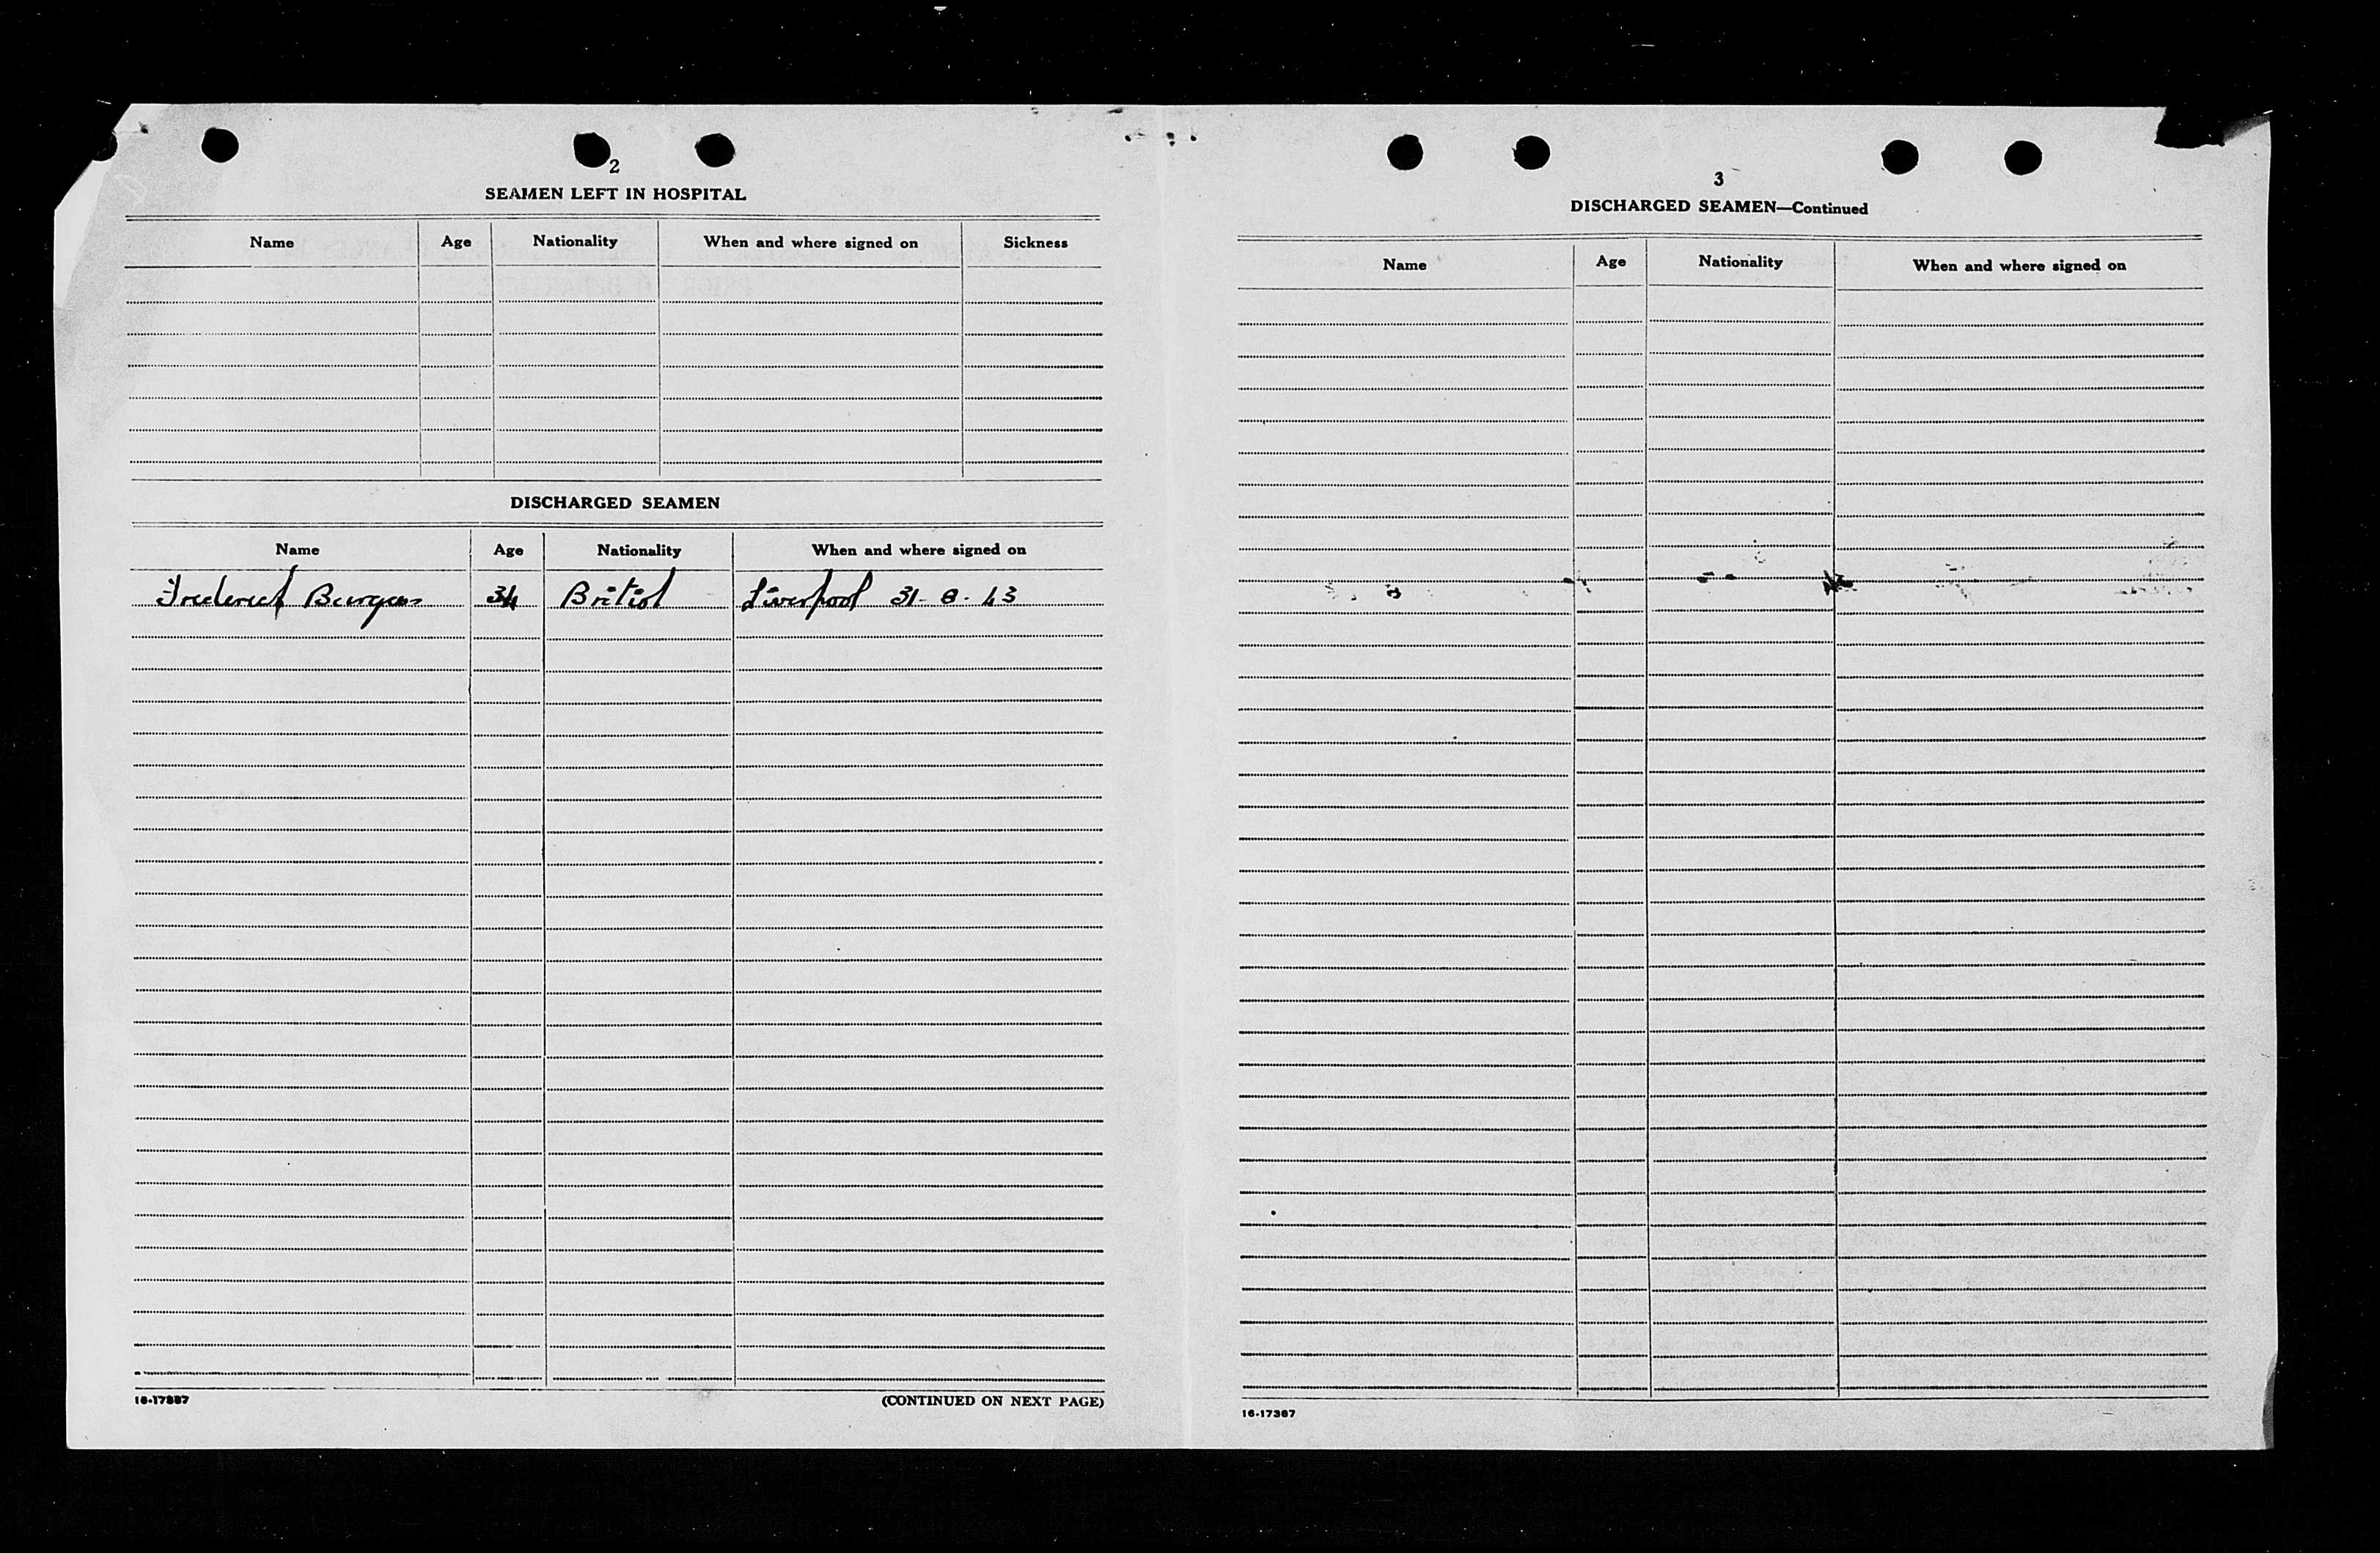 2
SEAMEN LEFT IN HOSPITAL
Name Age Nationality When and where signed on Sickness
DISCHARGED SEAMEN
Name Age Nationality When and where signed on
Frederick Burgess 34 British Liverpool 31-8-43
16-17387 (CONTINUED ON NEXT PAGE)
3
DISCHARGED SEAMEN—Continued
Name Age Nationality When and where signed on
16-17387